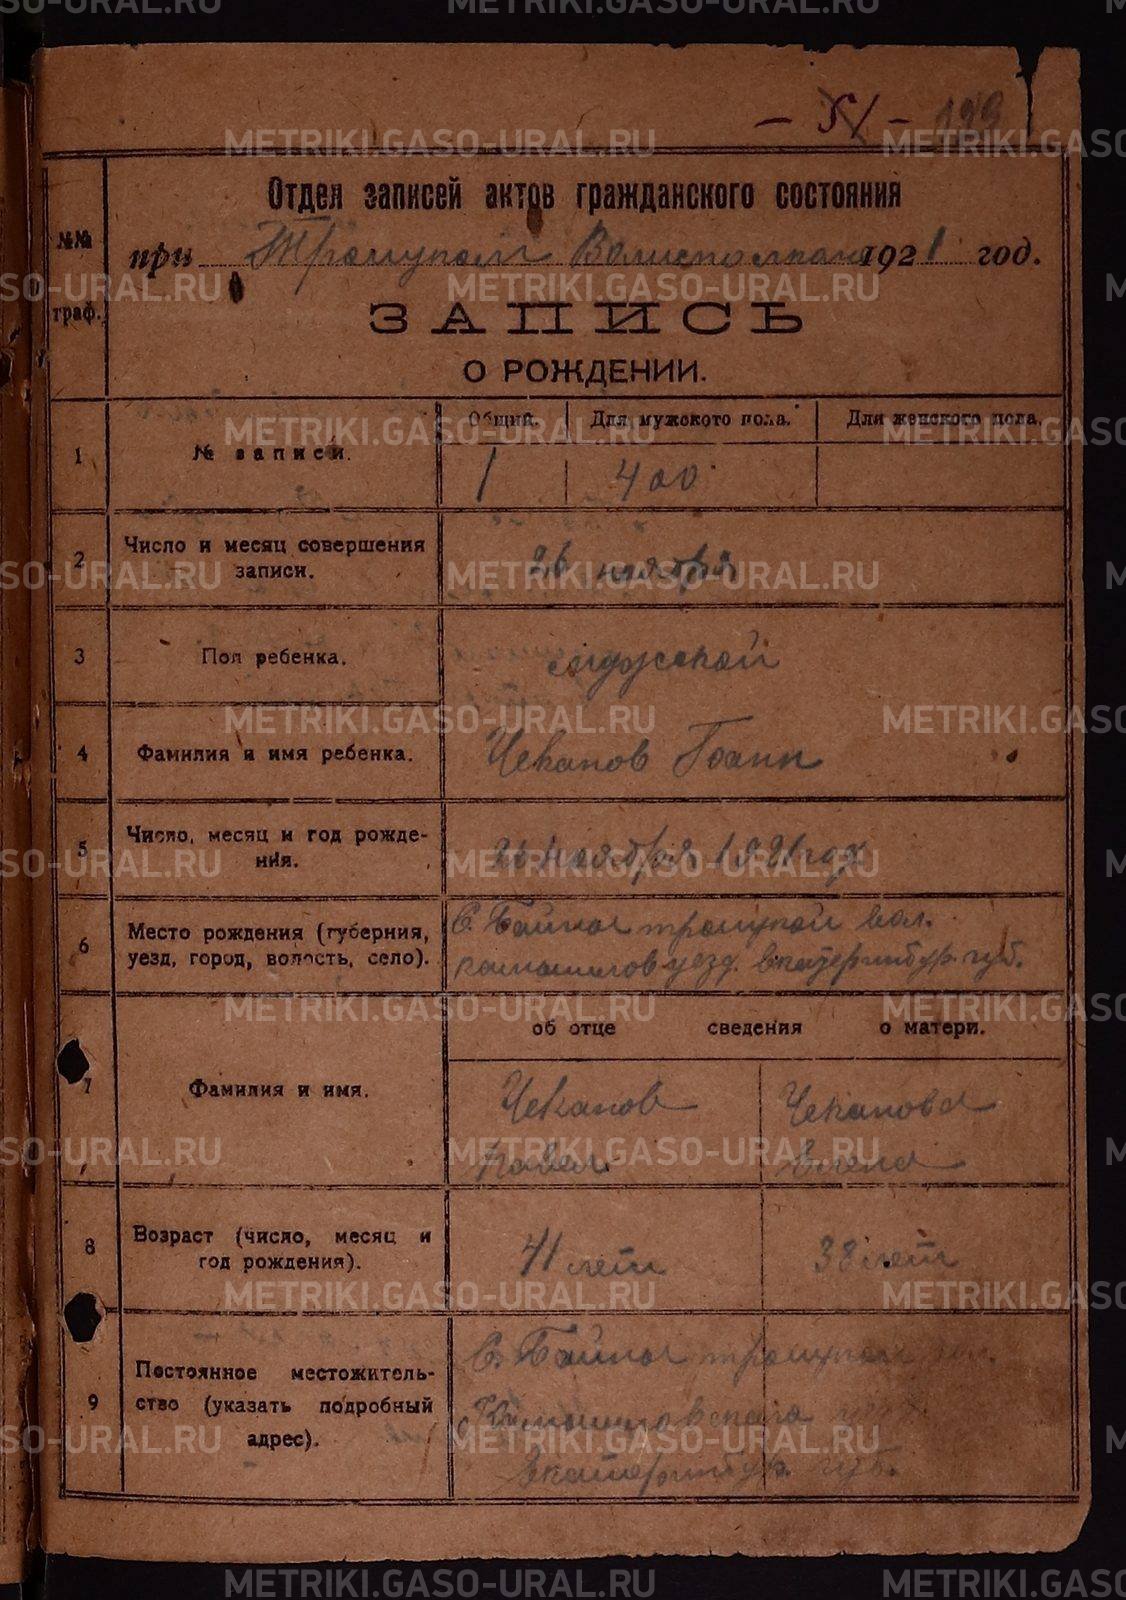 - 51 - 199
Отдел записей актов гражданского состояния
при Троицком Волисполком 1921 год.
№№ граф.
ЗАПИСЬ
О РОЖДЕНИИ.
Общий. Для мужского пола. Для женского пола.
1 № записи. 1 400
2 Число и месяц совершения записи. 26 ноября
3 Пол ребенка. мужской
4 Фамилия и имя ребенка. Чеканов Иоанн
5 Число, месяц и год рожде-
ния. 21 ноября 1921 год
6 Место рождения (губерния, С. Байны троицкой вол.
уезд, город, волость, село). камышлов уезд. екатеринбур. губ.
об отце сведения о матери.
7 Фамилия и имя. Чеканов Чеканова
Павел Елена
8 Возраст (число, месяц и
год рождения). 41 лет 38 лет
9 Постоянное местожитель- С. Байны троицкой вол.
ство (указать подробный Камышловского уезд
адрес). Екатеринбур. губ.
METRIKI.GASO-URAL.RU